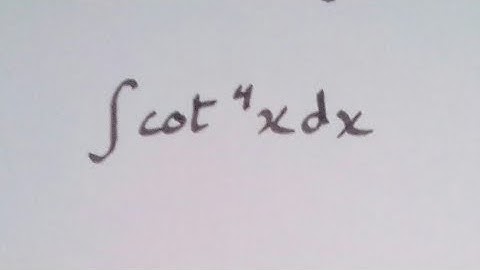 ∫cot⁴xdx